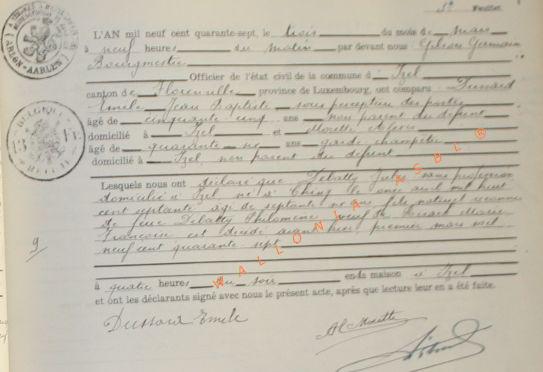 5e Feuillet.
L'AN mil neuf cent quarante-sept, le trois du mois de mars
à neuf heures du matin par devant nous Gilson Germain
Bourgmestre
Officier de l'état civil de la commune d' Izel
canton de Florenville province de Luxembourg, ont comparu Dussard
Emile Jean Baptiste sous percepteur des postes
âgé de cinquante cinq ans non parent du défunt
domicilié à Izel et Morette
âgé de quarante ans garde champêtre
domicilié à Izel non parent du défunt
Lesquels nous ont déclaré que Debatty Jules sans profession
domicilié à Izel né à Chiny le onze avril mil huit
cent septante âgé de septante ans fils naturel reconnu
de feue Debatty Philomène veuf de Marie
Françoise est décédé avant hier premier mars mil
neuf cent quarante sept
9
à quatre heures du soir en sa maison à Izel
et ont les déclarants signé avec nous le présent acte, après que lecture leur en a été faite.
Dussard Emile
Al Morette
WALLONIA ASBL ®